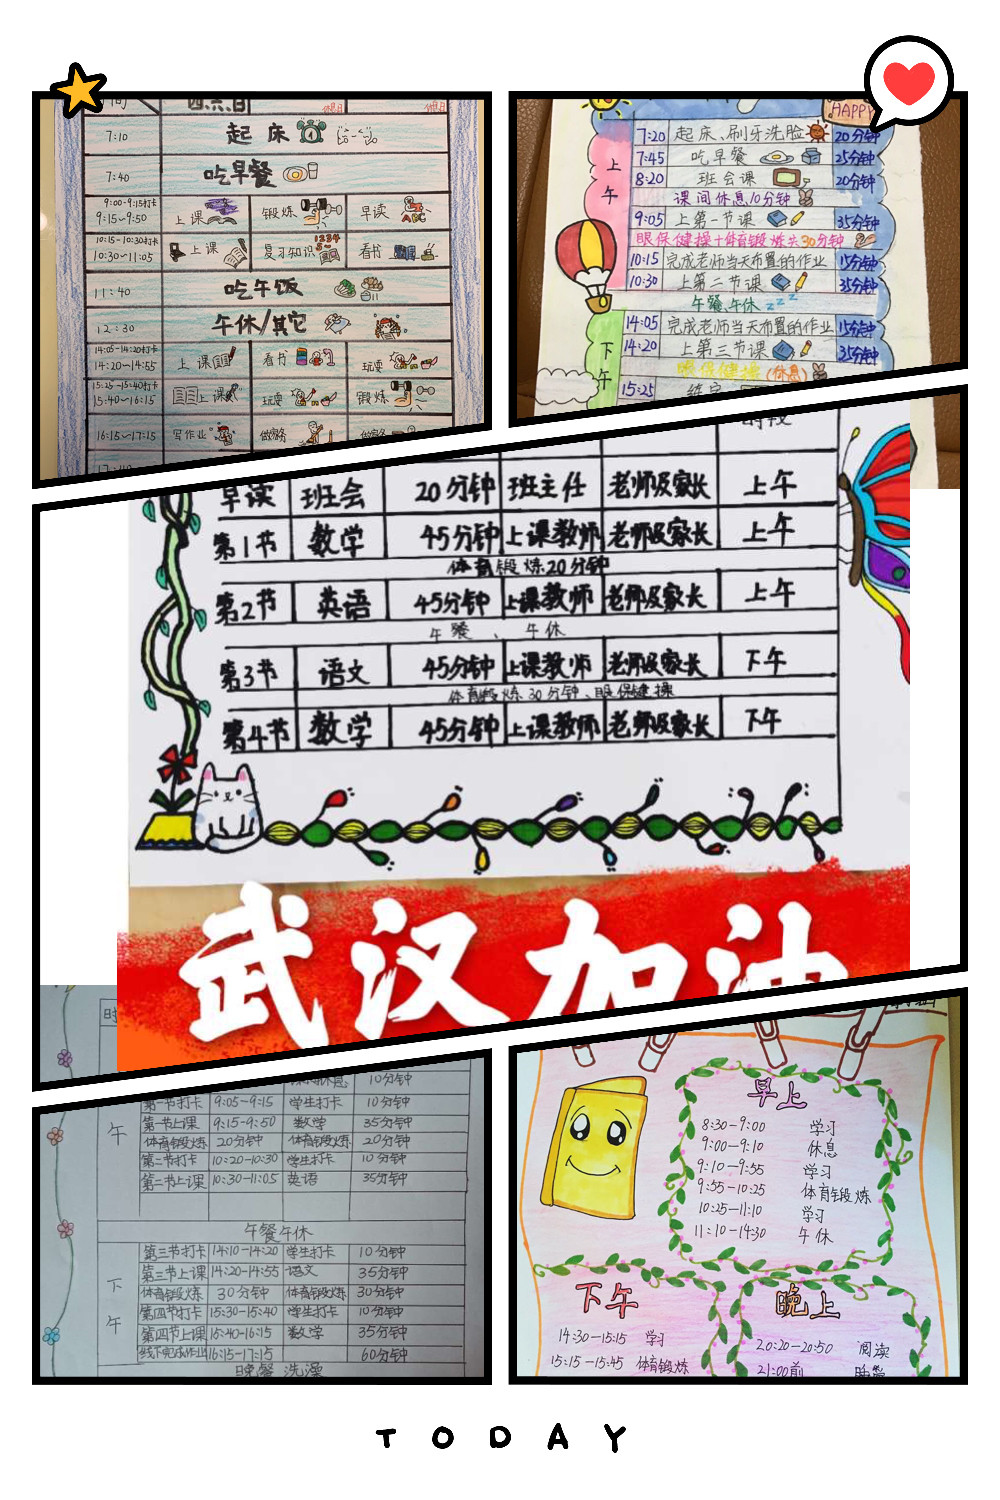 四.六.日
7:10 起床
7:40 吃早餐
9:00-9:15打卡
9:15~9:50 上课 锻炼 早读
ABC
10:15-10:30打卡
10:30~11:05 上课 复习知识 1234 看书
11:40 吃午饭
12:30 午休/其它
14:05-14:20打卡
14:20~14:55 上课 看书 玩耍
15:25-15:40打卡
15:40~16:15 上课 玩耍 锻炼
16:15~17:15 写作业 做家务 做家务
HAPPY
上午
7:20 起床、刷牙洗脸 20分钟
7:45 吃早餐 25分钟
8:20 班会课 20分钟
课间休息10分钟
9:05 上第一节课 35分钟
眼保健操+体育锻炼共30分钟
10:15 完成老师当天布置的作业 15分钟
10:30 上第二节课 35分钟
午餐、午休 zzz
下午
14:05 完成老师当天布置的作业 15分钟
14:20 上第三节课 35分钟
眼保健操(休息)
15:25
早读 班会 20分钟 班主任 老师及家长 上午
第1节 数学 45分钟 上课教师 老师及家长 上午
体育锻炼20分钟
第2节 英语 45分钟 上课教师 老师及家长 上午
午餐、午休
第3节 语文 45分钟 上课教师 老师及家长 下午
体育锻炼30分钟、眼保健操
第4节 数学 45分钟 上课教师 老师及家长 下午
武汉加油
时
10分钟
午
第一节打卡 9:05-9:15 学生打卡 10分钟
第一节上课 9:15-9:50 数学 35分钟
体育锻炼 20分钟 体育锻炼 20分钟
第二节打卡 10:20-10:30 学生打卡 10分钟
第二节上课 10:30-11:05 英语 35分钟
午餐午休
下午
第三节打卡 14:10-14:20 学生打卡 10分钟
第三节上课 14:20-14:55 语文 35分钟
体育锻炼 30分钟 体育锻炼 30分钟
第四节打卡 15:30-15:40 学生打卡 10分钟
第四节上课 15:40-16:15 数学 35分钟
线下完成作业 16:15-17:15 60分钟
晚餐 洗澡
早上
8:30-9:00 学习
9:00-9:10 休息
9:10-9:55 学习
9:55-10:25 体育锻炼
10:25-11:10 学习
11:10-14:30 午休
下午
14:30-15:15 学习
15:15-15:45 体育锻炼
晚上
20:20-20:50 阅读
21:00前
TODAY